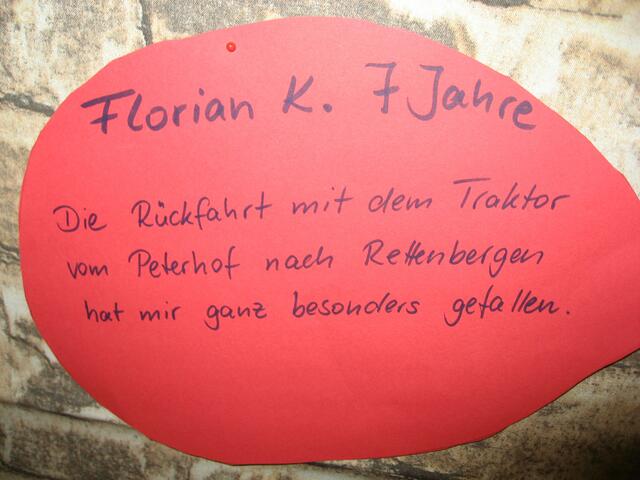 Florian K. 7 Jahre
Die Rückfahrt mit dem Traktor
vom Peterhof nach Rettenbergen
hat mir ganz besonders gefallen.